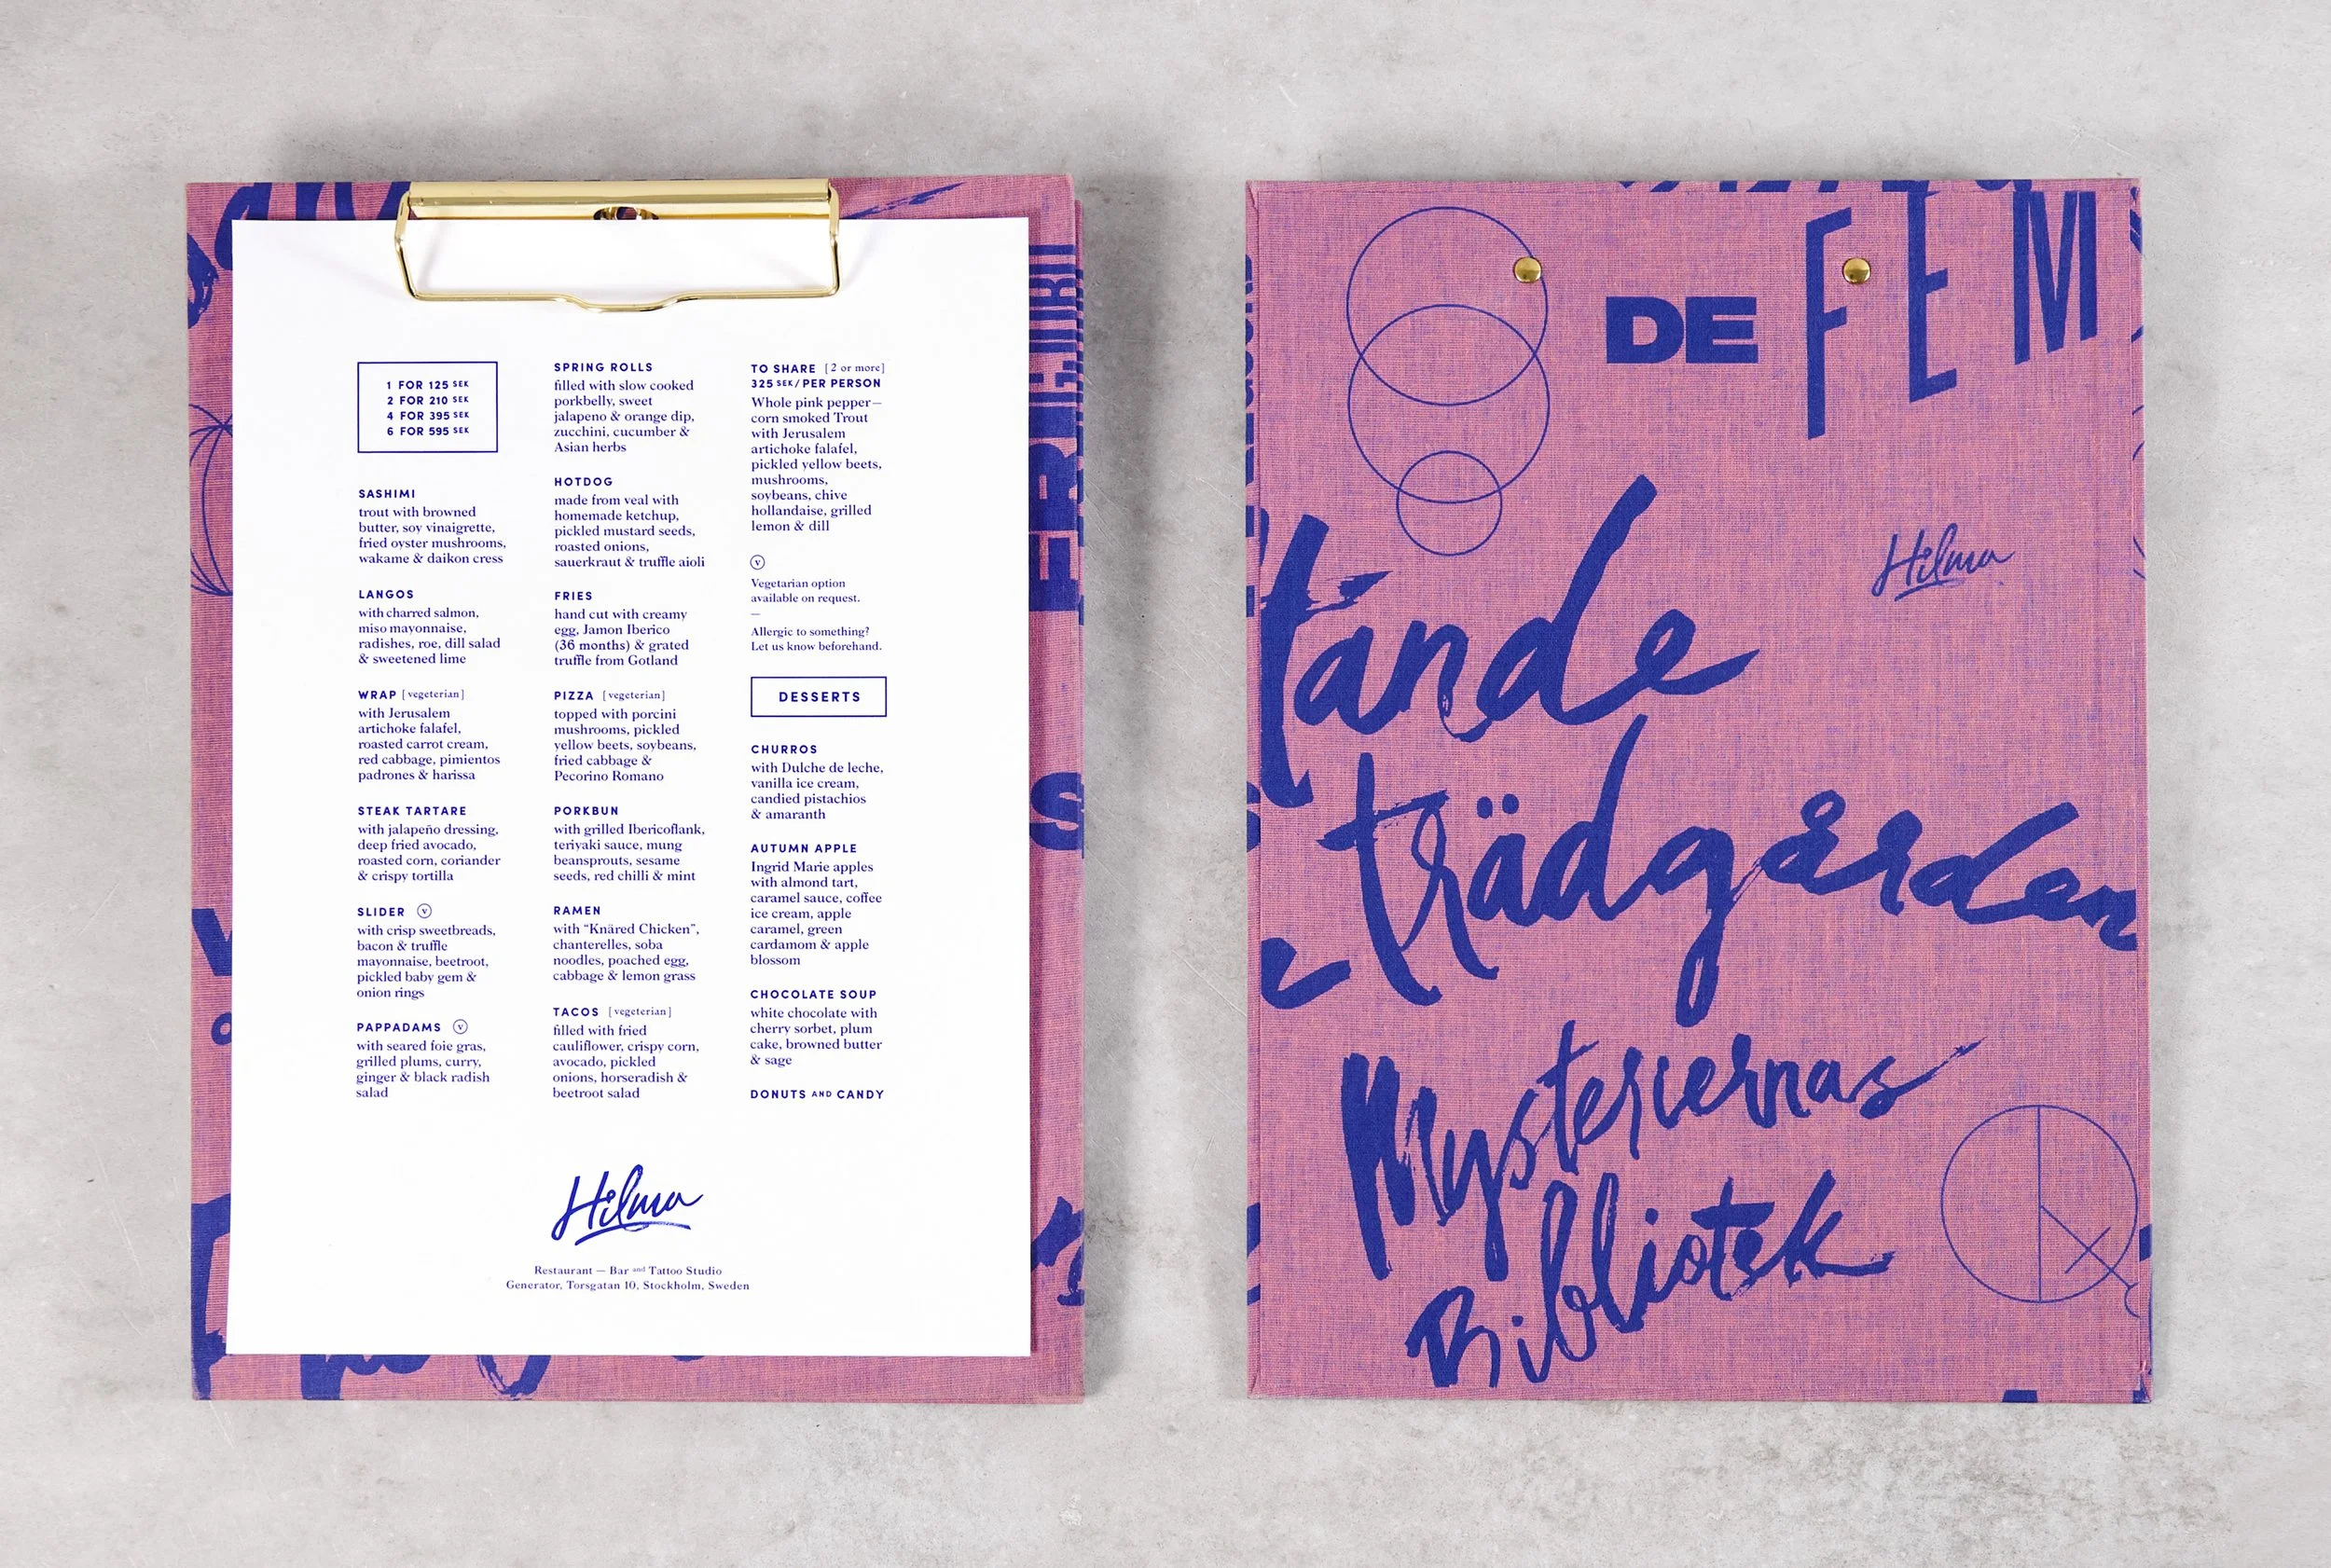 1 FOR 125 SEK
2 FOR 210 SEK
4 FOR 395 SEK
6 FOR 595 SEK
SASHIMI
trout with browned
butter, soy vinaigrette,
fried oyster mushrooms,
wakame & daikon cress
LANGOS
with charred salmon,
miso mayonnaise,
radishes, roe, dill salad
& sweetened lime
WRAP [vegeterian]
with Jerusalem
artichoke falafel,
roasted carrot cream,
red cabbage, pimientos
padrones & harissa
STEAK TARTARE
with jalapeño dressing,
deep fried avocado,
roasted corn, coriander
& crispy tortilla
SLIDER ⓥ
with crisp sweetbreads,
bacon & truffle
mayonnaise, beetroot,
pickled baby gem &
onion rings
PAPPADAMS ⓥ
with seared foie gras,
grilled plums, curry,
ginger & black radish
salad
SPRING ROLLS
filled with slow cooked
porkbelly, sweet
jalapeno & orange dip,
zucchini, cucumber &
Asian herbs
HOTDOG
made from veal with
homemade ketchup,
pickled mustard seeds,
roasted onions,
sauerkraut & truffle aioli
FRIES
hand cut with creamy
egg, Jamon Iberico
(36 months) & grated
truffle from Gotland
PIZZA [vegeterian]
topped with porcini
mushrooms, pickled
yellow beets, soybeans,
fried cabbage &
Pecorino Romano
PORKBUN
with grilled Ibericoflank,
teriyaki sauce, mung
beansprouts, sesame
seeds, red chilli & mint
RAMEN
with “Knäred Chicken”,
chanterelles, soba
noodles, poached egg,
cabbage & lemon grass
TACOS [vegeterian]
filled with fried
cauliflower, crispy corn,
avocado, pickled
onions, horseradish &
beetroot salad
TO SHARE [2 or more]
325 SEK/PER PERSON
Whole pink pepper—
corn smoked Trout
with Jerusalem
artichoke falafel,
pickled yellow beets,
mushrooms,
soybeans, chive
hollandaise, grilled
lemon & dill
ⓥ
Vegetarian option
available on request.
—
Allergic to something?
Let us know beforehand.
DESSERTS
CHURROS
with Dulche de leche,
vanilla ice cream,
candied pistachios
& amaranth
AUTUMN APPLE
Ingrid Marie apples
with almond tart,
caramel sauce, coffee
ice cream, apple
caramel, green
cardamom & apple
blossom
CHOCOLATE SOUP
white chocolate with
cherry sorbet, plum
cake, browned butter
& sage
DONUTS AND CANDY
Hilma
Restaurant — Bar and Tattoo Studio
Generator, Torsgatan 10, Stockholm, Sweden
DE FEM
Hilma
tande
trädgården
Mysteriernas
Bibliotek